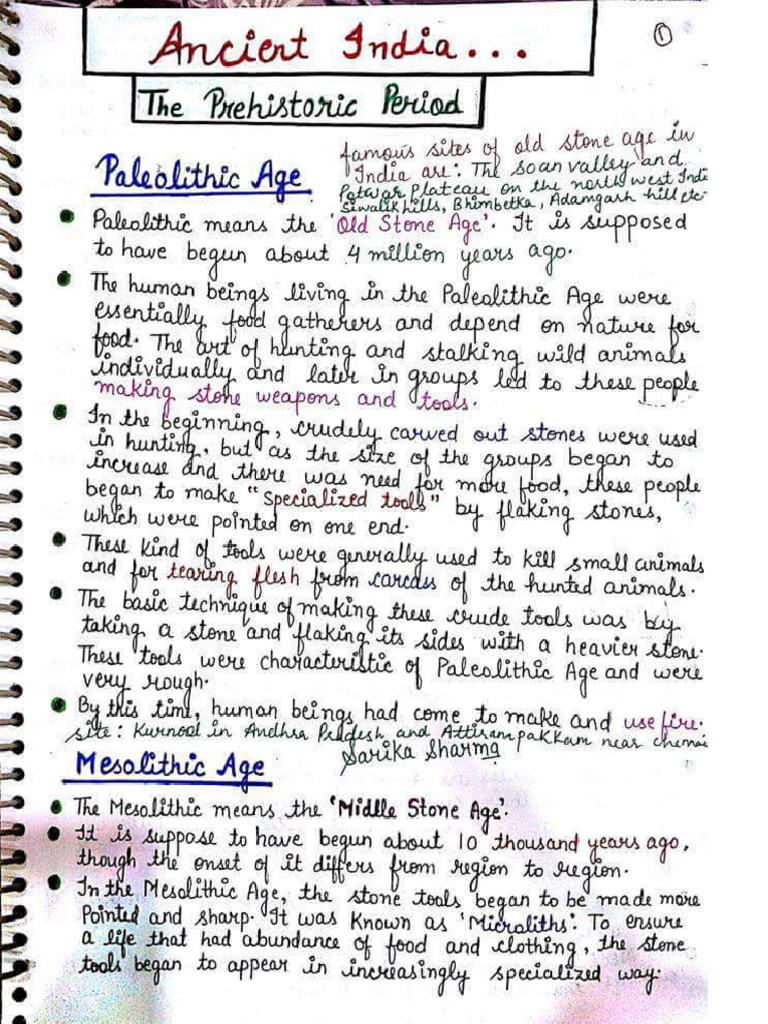 Ancient India...
1
The Prehistoric Period
Paleolithic Age
famous sites of old stone age in
India are: The soan valley and
Potwar Plateau on the north west Indi
Siwalik hills, Bhimbetka, Adamgarh hill etc.
Paleolithic means the 'Old Stone Age'. It is supposed
to have begun about 4 million years ago.
The human beings living in the Paleolithic Age were
essentially food gatherers and depend on nature for
food. The art of hunting and stalking wild animals
individually and later in groups led to these people
making stone weapons and tools.
In the beginning, crudely carved out stones were used
in hunting, but as the size of the groups began to
increase and there was need for more food, these people
began to make "specialized tools" by flaking stones,
which were pointed on one end.
These kind of tools were generally used to kill small animals
and for tearing flesh from carcass of the hunted animals.
The basic technique of making these crude tools was by
taking a stone and flaking its sides with a heavier stone.
These tools were characteristic of Paleolithic Age and were
very rough.
By this time, human beings had come to make and use fire.
site: Kurnool in Andhra Pradesh and Attirampakkam near chennai
Sarika Sharma
Mesolithic Age
The Mesolithic means the 'Middle Stone Age'.
It is suppose to have begun about 10 thousand years ago,
though the onset of it differs from region to region.
In the Mesolithic Age, the stone tools began to be made more
Pointed and sharp. It was Known as 'Microliths'. To ensure
a life that had abundance of food and clothing, the stone
tools began to appear in increasingly specialized way.